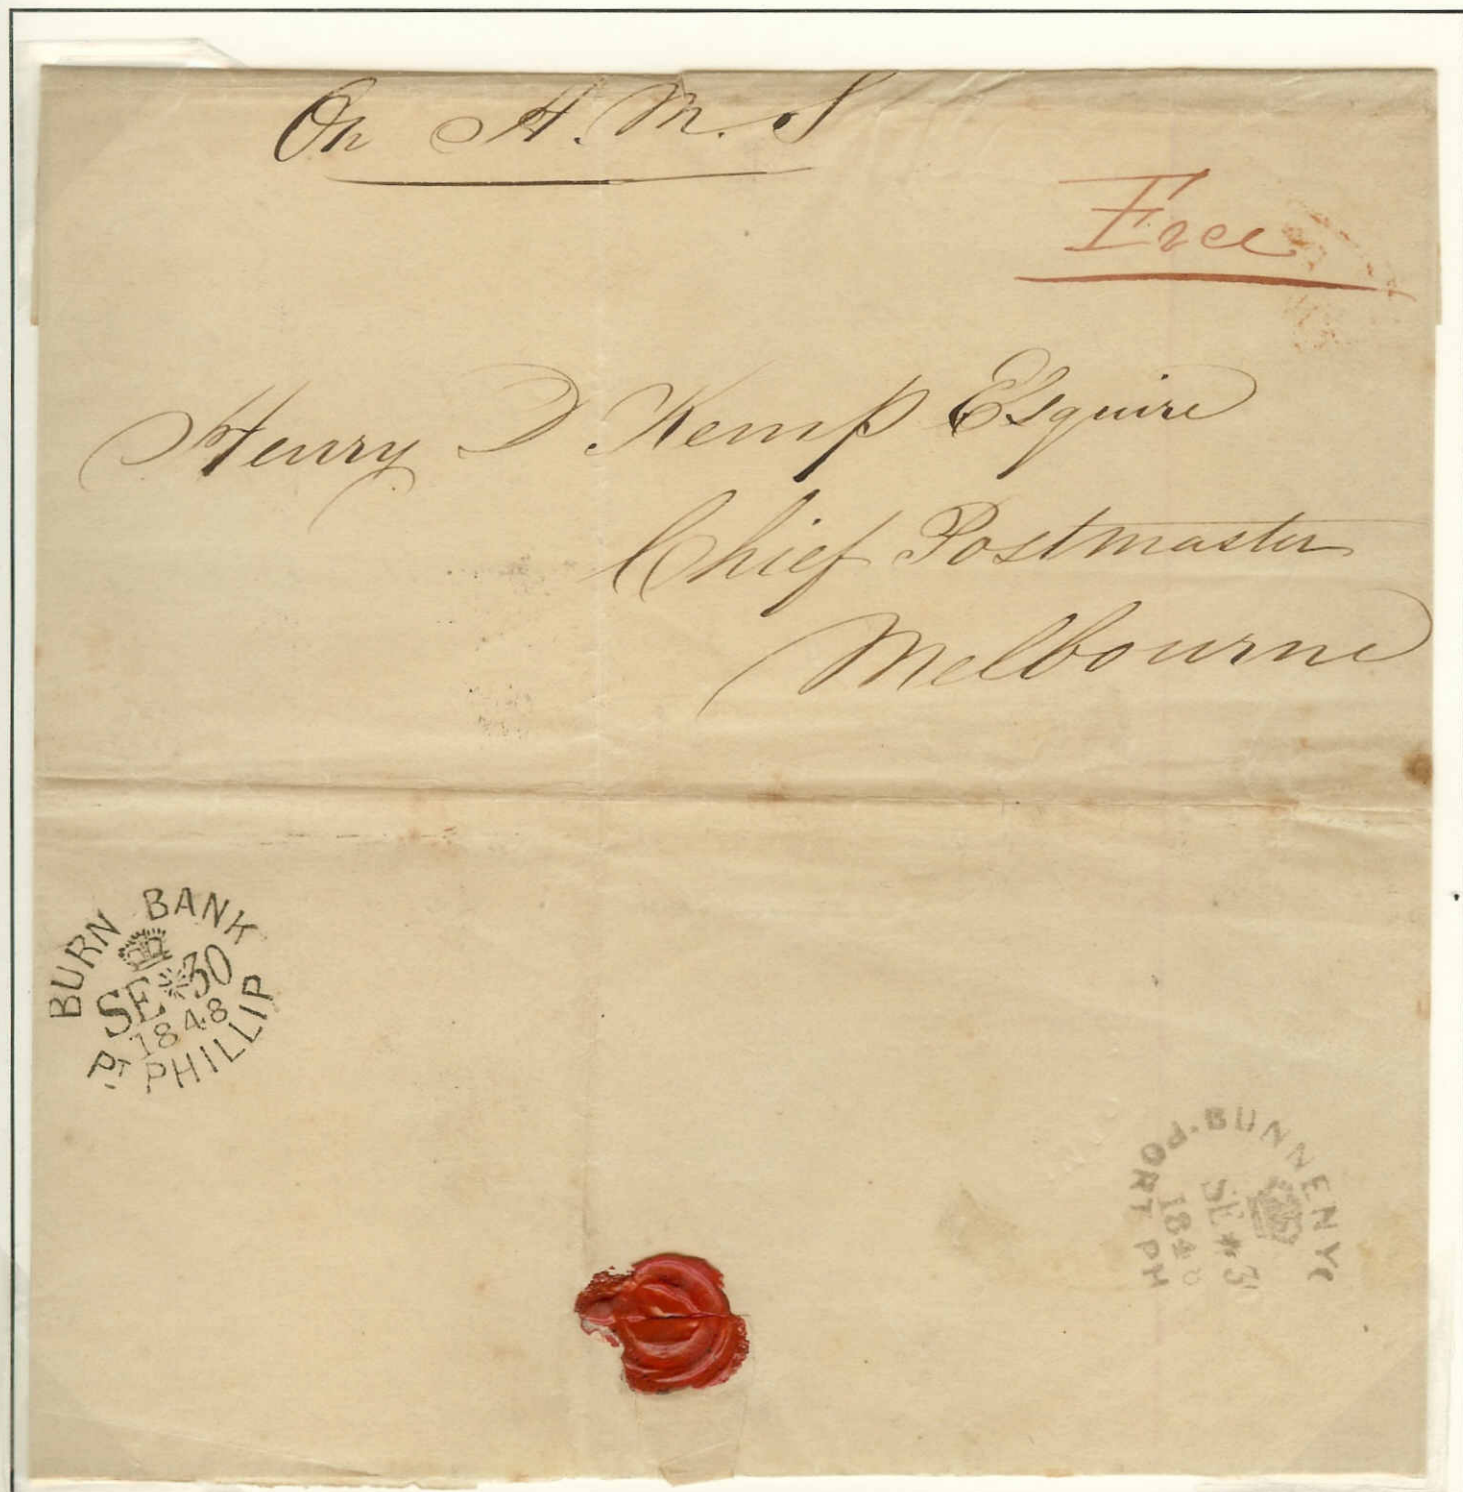 On H. M. S
Free
Henry D Kemp Esquire
Chief Postmaster
Melbourne
BURN BANK
SE 30
1848
PT PHILLIP
BUNNENY
SE * 3
184
PORT PH